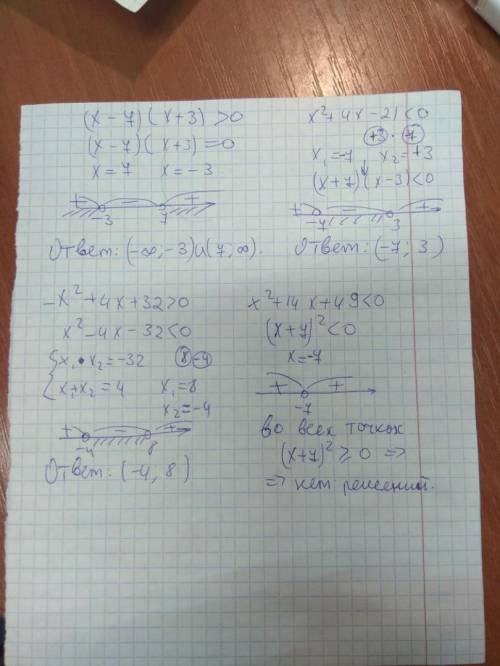 (x-7)(x+3)>0
(x-7)(x+3)=0
x=7 x=-3
+ - +
-3 7
Ответ: (-∞;-3)∪(7,∞).
x²+4x-21<0
+3 · 7
x₁=-7, x₂=+3
(x+7)(x-3)<0
+ - +
-7 3
Ответ: (-7; 3)
-x²+4x+32>0
x²-4x-32<0
{x₁•x₂=-32 8 -4
{x₁+x₂=4 x₁=8
x₂=-4
+ - +
-4 8
Ответ: (-4, 8)
x²+14x+49<0
(x+7)²<0
x=-7
+ +
-7
во всех точках
(x+7)²⩾0 =>
=> нет решений.